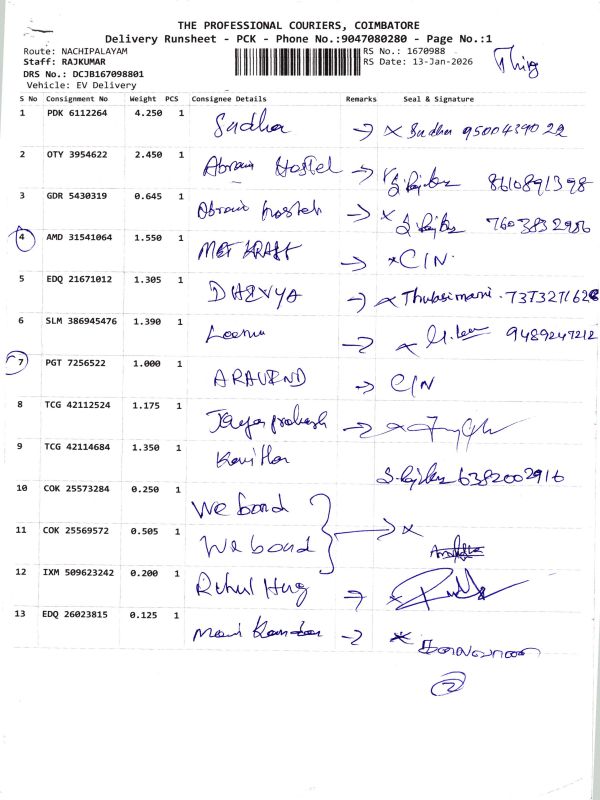 THE PROFESSIONAL COURIERS, COIMBATORE
Delivery Runsheet - PCK - Phone No.:9047080280 - Page No.:1
Route: NACHIPALAYAM RS No.: 1670988
Staff: RAJKUMAR RS Date: 13-Jan-2026
DRS No.: DCJB167098801
Vehicle: EV Delivery
S No Consignment No Weight PCS Consignee Details Remarks Seal & Signature
1 PDK 6112264 4.250 1 Sudha → x Sudha 9500439022
2 OTY 3954622 2.450 1 Hostel → 8610891398
3 GDR 5430319 0.645 1 → x 7603832986
4 AMD 31541064 1.550 1 → x C/N.
5 EDQ 21671012 1.305 1 DHIVYA → x Thulasimani.
6 SLM 386945476 1.390 1 Leema → x 9489247212
7 PGT 7256522 1.000 1 ARAVIND → C/N
8 TCG 42112524 1.175 1 Jayaprakash → x
9 TCG 42114684 1.350 1 Kavitha 6382002916
10 COK 25573284 0.250 1 We bond
11 COK 25569572 0.505 1 We bond → x
12 IXM 509623242 0.200 1 → x
13 EDQ 26023815 0.125 1 Mani → x
2